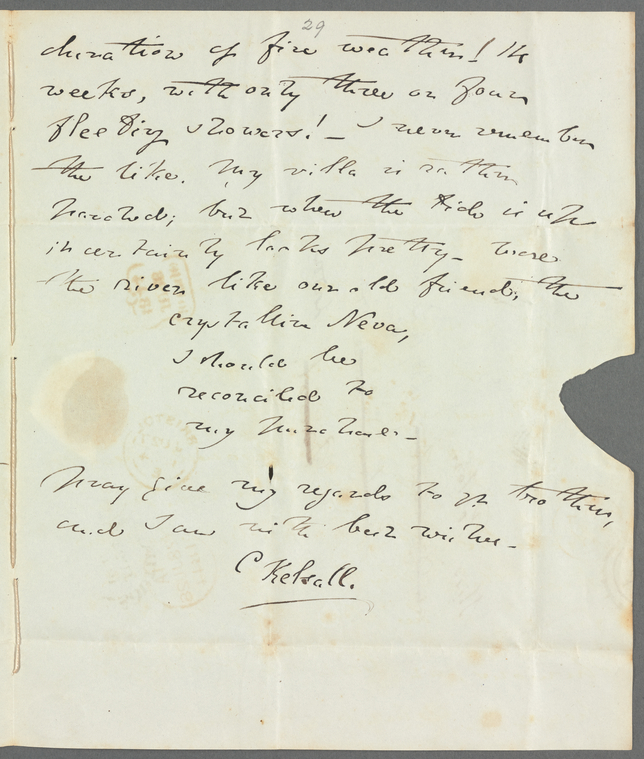 29
duration of fine weather! 14
weeks, with only three or four
fleeting showers! - I never remember
the like. My villa is rather
parched; but when the tide is up
it certainly looks pretty - were
the river like our old friend, the
crystallin Neva,
I should be
reconciled to
my purchase -
Pray give my regards to yr brother,
and I am with best wishes -
C Kelsall.